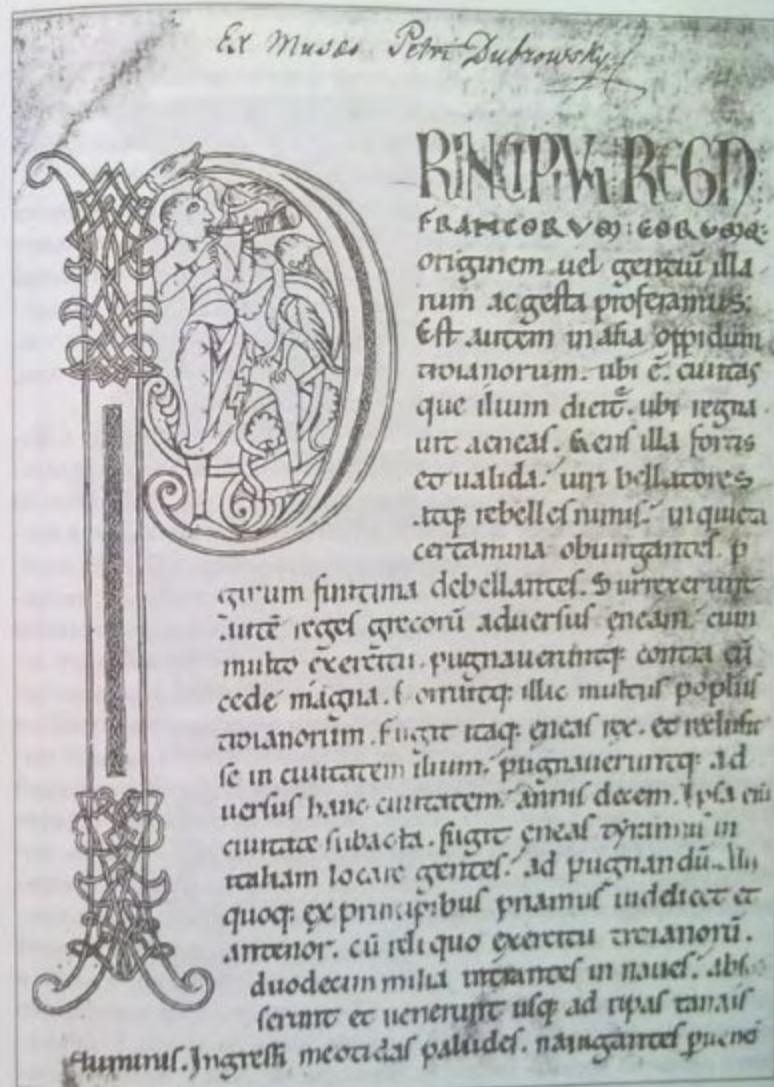 Ex Museo Petri Dubrowsky
PRINCIPIVM REGN
FRANCORVM: EORVMQ:
originem uel gentiū illa
rum ac gesta proferamus:
Est autem in asia oppidum
troianorum. ubi ē. ciuitas
que ilium dicit̄. ubi regna
uit aeneas. Gens illa fortis
et ualida. uiri bellatores
atq; rebelles nimis. inquieta
certamina obiurgantes. p
girum finitima debellantes. Surrexerunt
autē reges grecorū aduersus eneam. cum
multo exercitu. pugnaueruntq; contra eū
cede magna. Corruitq; illic multus populus
troianorum. Fugit itaq; eneas rex. et reclusit
se in ciuitatem ilium. pugnaueruntq; ad
uersus hanc ciuitatem. annis decem. Ipsa eni
ciuitate subacta. fugit eneas tyrannus in
italiam locare gentes. ad pugnandū. Alii
quoq; ex principibus priamus uiddicet et
antenor. cū reliquo exercitu troianorū.
duodecim milia intrantes in naues. abs
serunt et uenerunt usq; ad ripas tanais
fluminis. Ingressi meotidas paludes. nauigantes puene